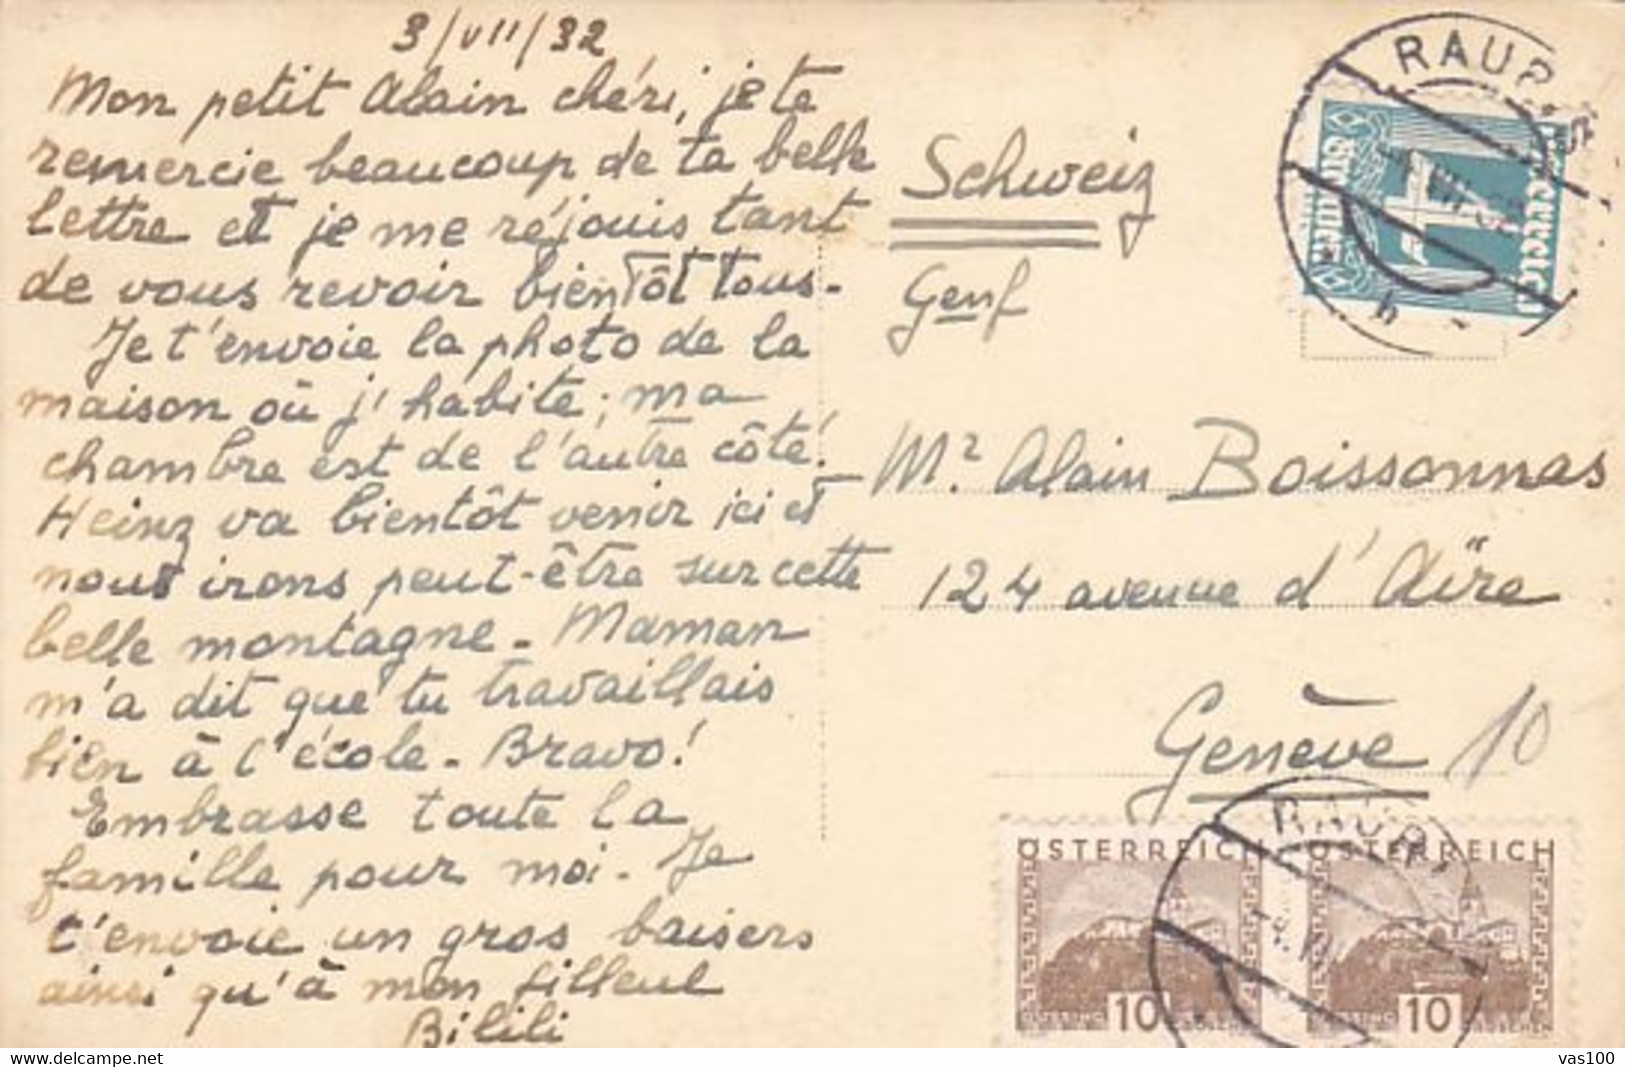 3/VII/32
Mon petit Alain chéri, je te
remercie beaucoup de ta belle
lettre et je me réjouis tant
de vous revoir bientôt tous.
Je t'envoie la photo de la
maison où j'habite; ma
chambre est de l'autre côté!
Heinz va bientôt venir ici et
nous irons peut-être sur cette
belle montagne. Maman
m'a dit que tu travaillais
bien à l'école. Bravo!
Embrasse toute la
famille pour moi. Je
t'envoie un gros baisers
ainsi qu'à mon filleul
Bilili
Schweiz
Genf
Mr. Alain Boissonnas
124 avenue d'Aïre
Genève 10
ÖSTERREICH ÖSTERREICH
10 10
delcampe.net
vas100